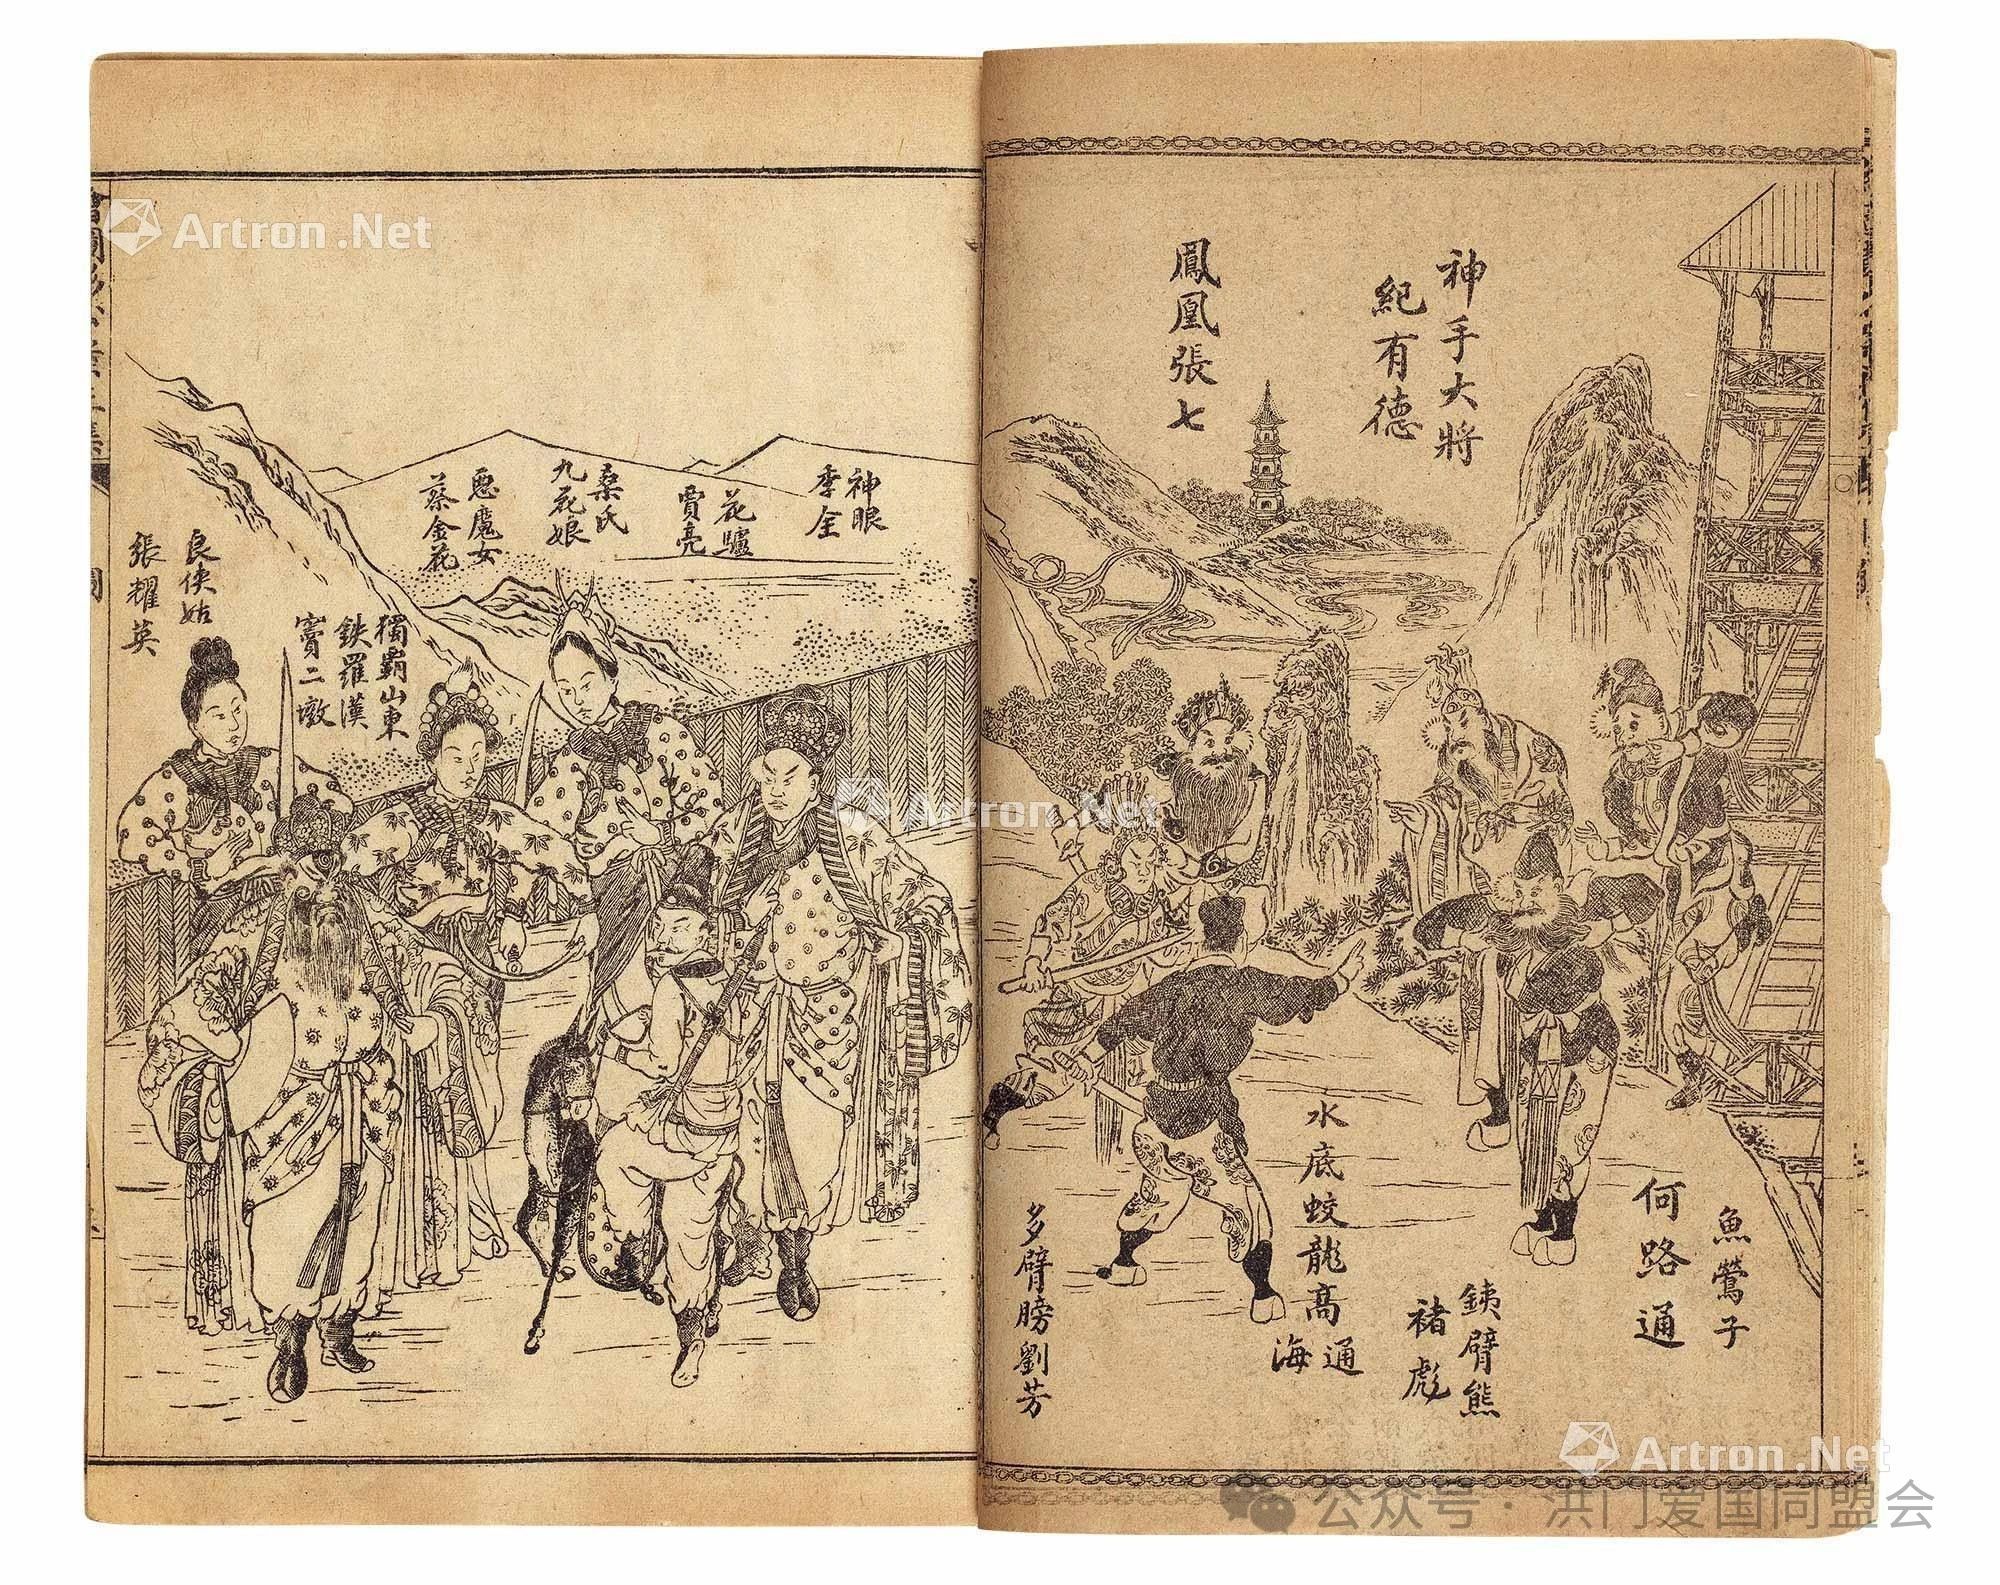 神手大將
紀有德
鳳凰張七
魚鶯子
何路通
鉄臂熊
褚彪
水底蛟龍高通
海
多臂膀劉芳
神眼
季全
花驢
賈亮
桑氏
九花娘
惡魔女
蔡金花
獨霸山東
鉄羅漢
竇二墩
良俠姑
張耀英
Artron.Net
Artron.Net
Artron.Net
公众号 · 洪门爱国同盟会